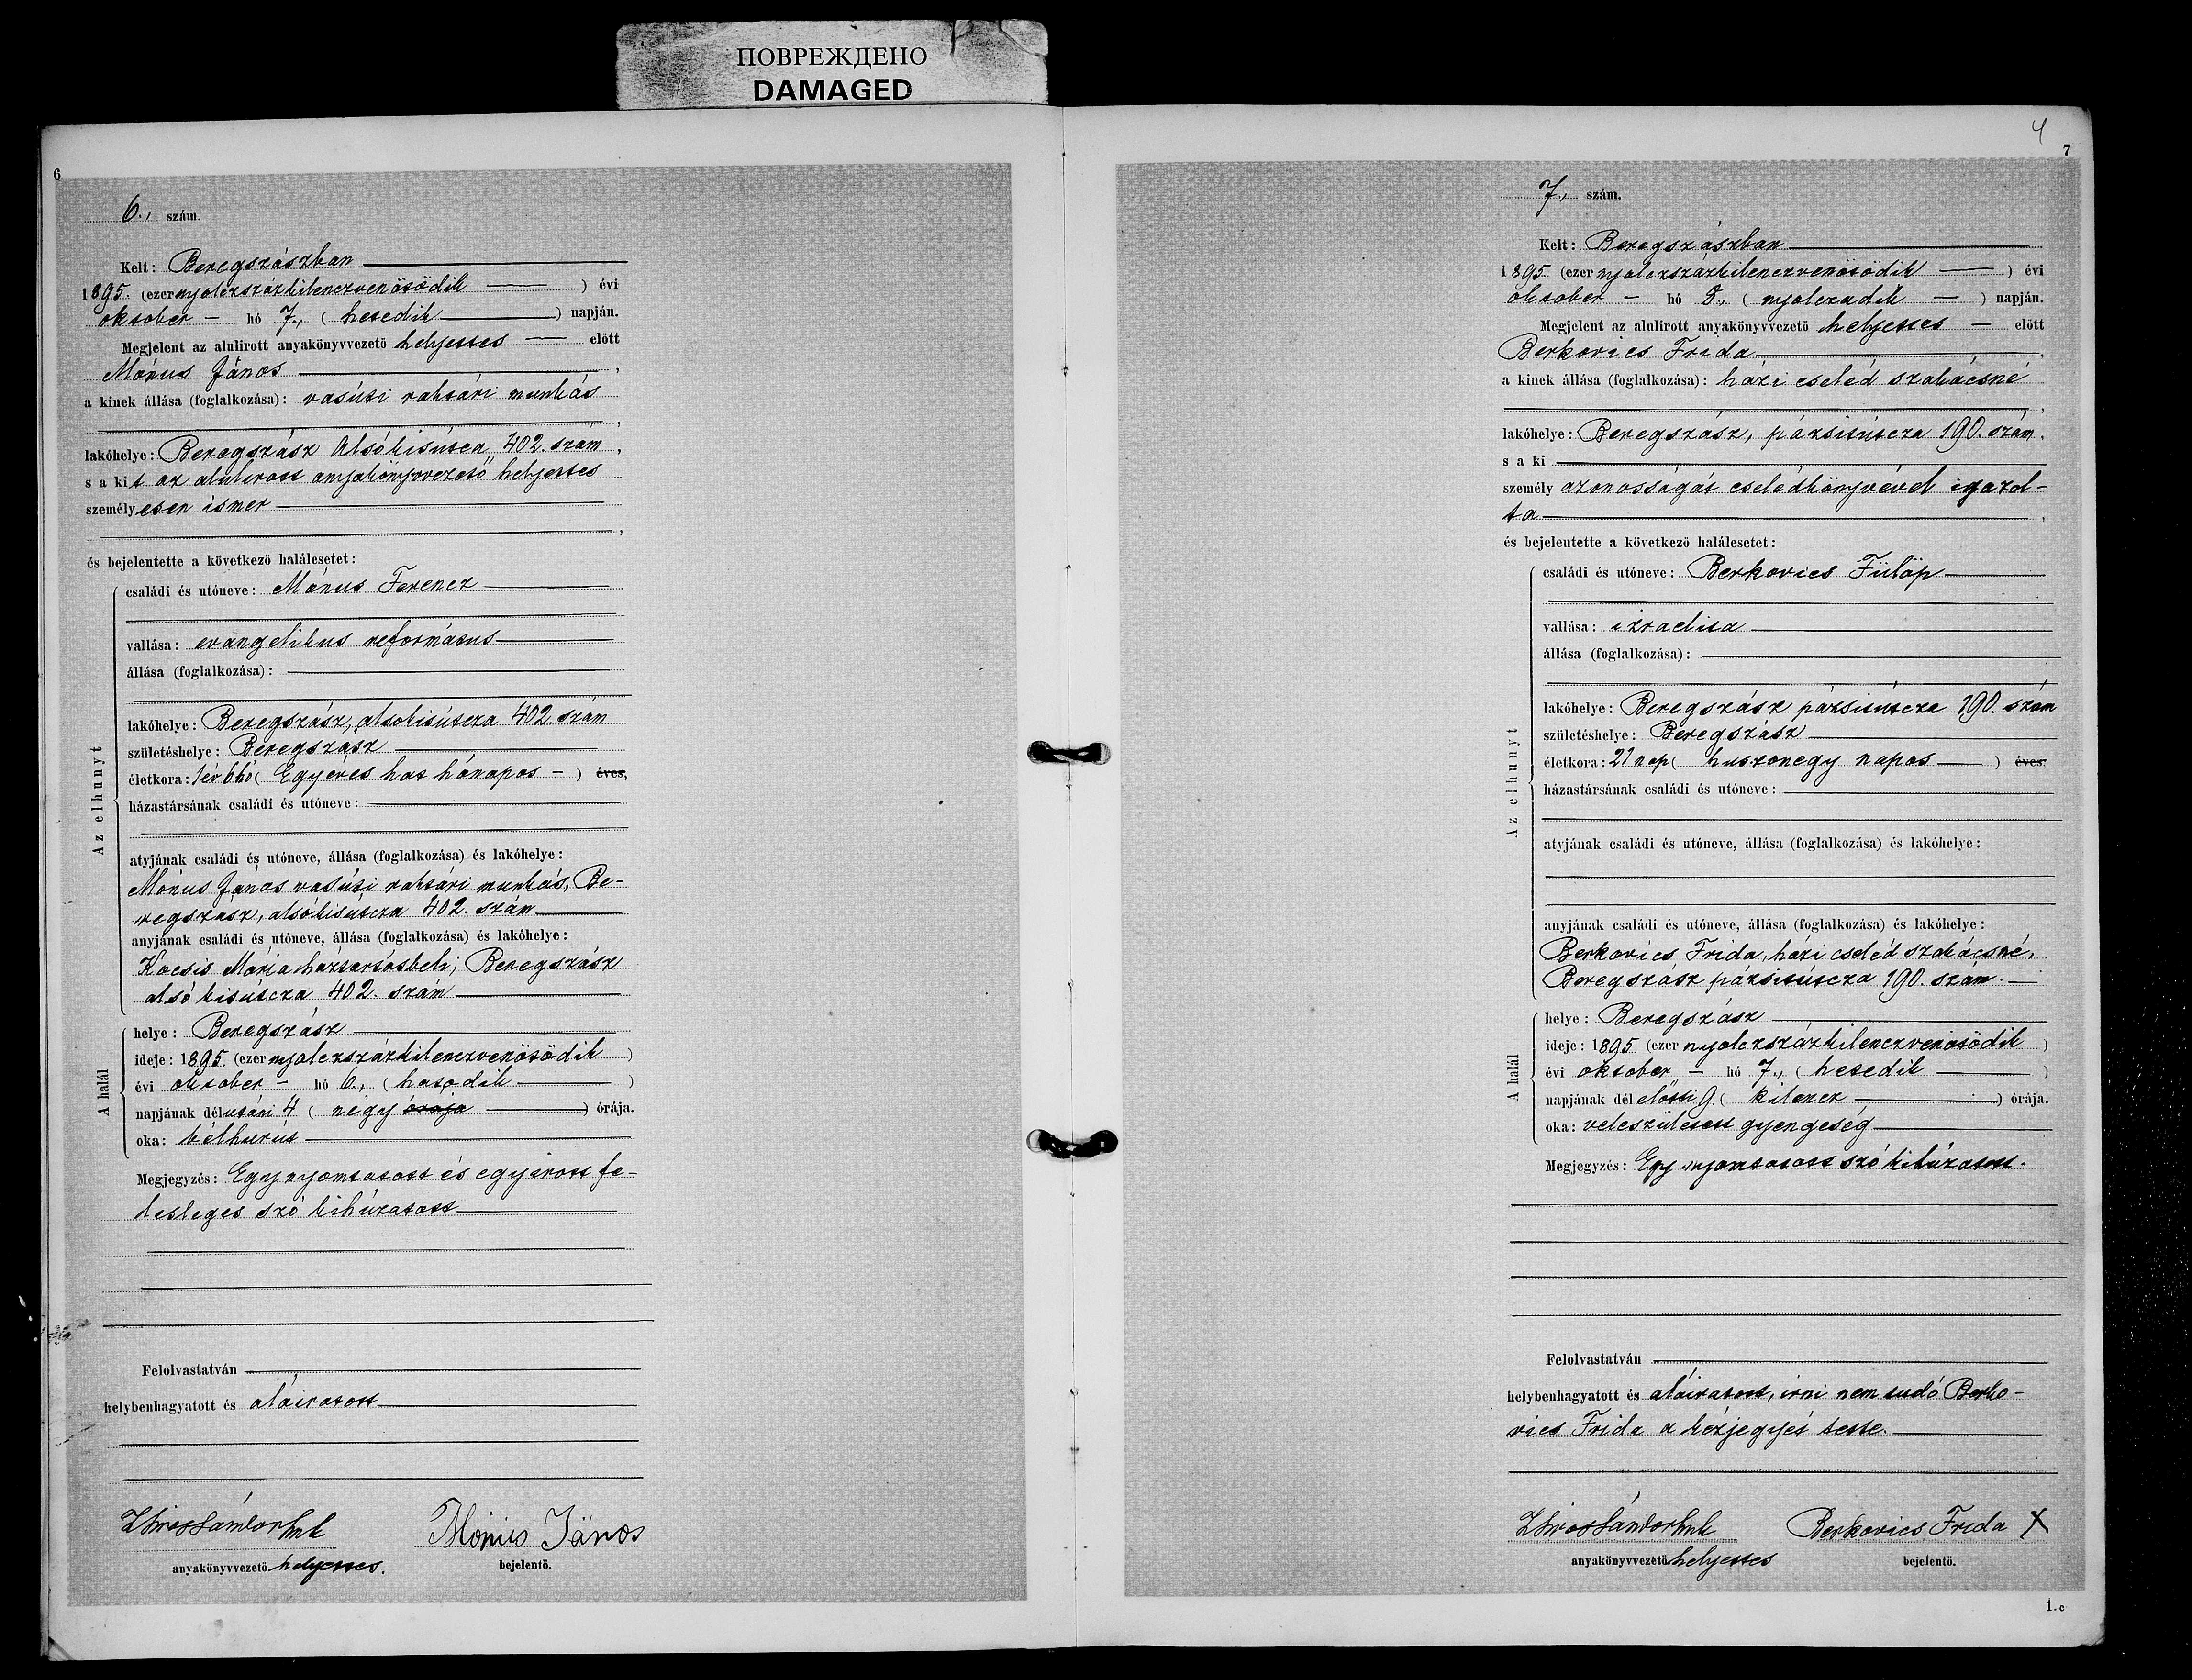 ПОВРЕЖДЕНО
DAMAGED
6
6., szám.
Kelt: Beregszászban
1895. (ezernyolczszázkilenczvenötödik) évi
október – hó 7., (hetedik) napján.
Megjelent az alulirott anyakönyvvezető helyettes – előtt
Mónus János,
a kinek állása (foglalkozása): vasúti raktári munkás
,
lakóhelye: Beregszász Alsókisútcza 402. szám,
s a kit az alulirott anyakönyvvezető helyettes
személyesen ismer
,
és bejelentette a következő halálesetet:
Az elhunyt
családi és utóneve: Mónus Ferencz
vallása: evangelikus református
állása (foglalkozása):
lakóhelye: Beregszász, alsókisútcza 402. szám
születéshelye: Beregszász
életkora: 1 év 6 hó (Egy éves hat hónapos –) éves,
házastársának családi és utóneve:
atyjának családi és utóneve, állása (foglalkozása) és lakóhelye:
Mónus János vasúti raktári munkás, Be-
regszász, alsókisútcza 402. szám
anyjának családi és utóneve, állása (foglalkozása) és lakóhelye:
Kocsis Mária háztartásbeli, Beregszász
alsó kisútcza 402. szám
A halál
helye: Beregszász
ideje: 1895 (ezernyolczszázkilenczvenötödik)
évi október – hó 6., (hatodik)
napjának délutáni 4 (négy órája) órája.
oka: bélhurút
Megjegyzés: Egy nyomtatott és egy irott fe-
lesleges szó kihúzatott
Felolvastatván
helybenhagyatott és aláiratott
Mónus János
anyakönyvvezető helyettes.
bejelentő.
4
7
7., szám.
Kelt: Beregszászban
1895. (ezernyolczszázkilenczvenötödik) évi
október – hó 8., (nyolczadik –) napján.
Megjelent az alulirott anyakönyvvezető helyettes – előtt
Berkovics Frida,
a kinek állása (foglalkozása): házi cseléd szakácsné
,
lakóhelye: Beregszász, pázsitútcza 190. szám,
s a ki
személy azonosságát cselédkönyvével igazol-
ta,
és bejelentette a következő halálesetet:
Az elhunyt
családi és utóneve: Berkovics Fülöp
vallása: izraelita
állása (foglalkozása):
lakóhelye: Beregszász pázsitútcza 190. szám
születéshelye: Beregszász
életkora: 21 nap (huszonegy napos) éves.
házastársának családi és utóneve:
atyjának családi és utóneve, állása (foglalkozása) és lakóhelye:
anyjának családi és utóneve, állása (foglalkozása) és lakóhelye:
Berkovics Frida, házi cseléd szakácsné,
Beregszász pázsitútcza 190. szám. –
A halál
helye: Beregszász
ideje: 1895 (ezernyolczszázkilenczvenötödik)
évi október – hó 7., (hetedik)
napjának délelőtti 9 (kilencz) órája.
oka: veleszületett gyengeség
Megjegyzés: Egy nyomtatott szó kihúzatott.
Felolvastatván
helybenhagyatott és aláiratott, irni nem tudó Berko-
vics Frida a kézjegyét tette.
Berkovics Frida X
anyakönyvvezető helyettes
bejelentő.
1.c